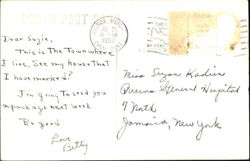 POST
Dear Suzie,
This is the Town where
I live. See my house that
I have marked?
I'm going to send you
a package next week.
Be good
Love
Betty
Miss Susan Kadis
Queens General Hospital
7 North
Jamaica, New York